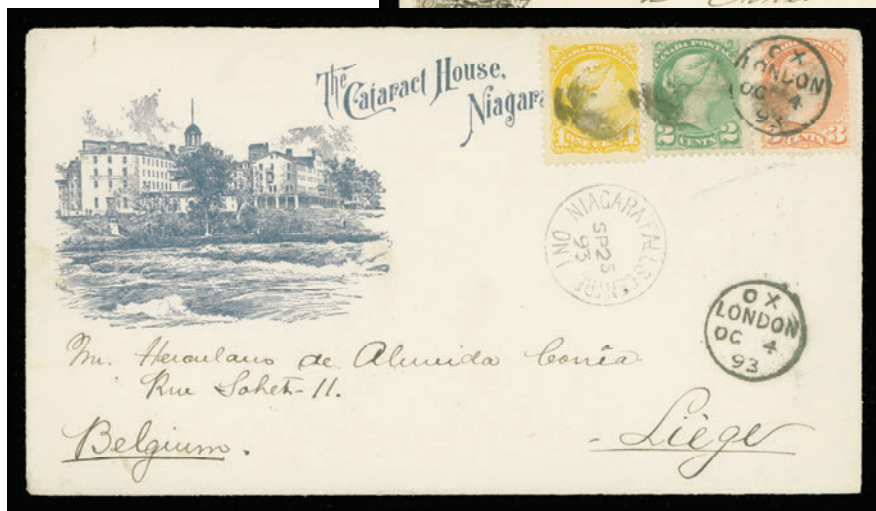 The Cataract House,
Niagara
CANADA POSTAGE
1 ONE CENT 1
CANADA POSTAGE
2 CENTS 2
CENTS 3
OX
LONDON
OC 4
93
NIAGARA FALLS CENTRE ONT
SP 25
93
OX
LONDON
OC 4
93
Mr. Herculano de Almeida Corrêa
Rue Sohet-11.
Belgium.
- Liège